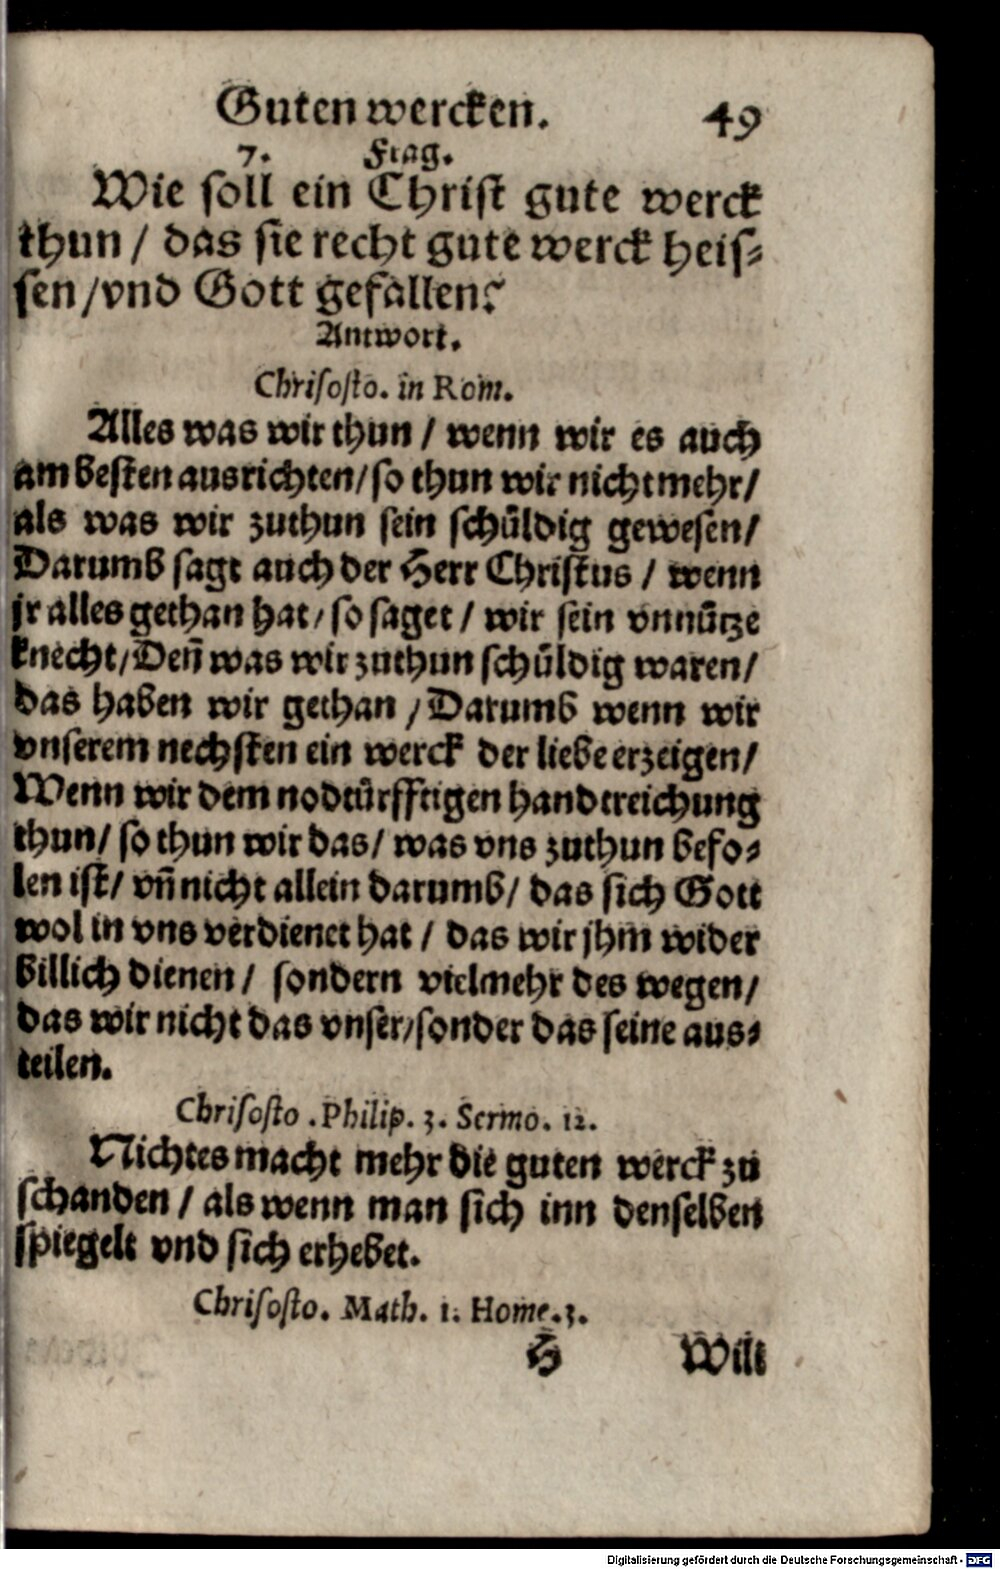 Guten wercken. 49
7. Frag.
Wie soll ein Christ gute werck
thun / das sie recht gute werck heis⸗
sen /vnd Gott gefallen?
Antwort.
Chrisosto. in Rom.
Alles was wir thun / wenn wir es auch
am besten ausrichten/ so thun wir nicht mehr/
als was wir zuthun sein schüldig gewesen/
Darumb sagt auch der Herr Christus / wenn
jr alles gethan hat/ so saget / wir sein vnnütze
knecht/ Deñ was wir zuthun schüldig waren/
das haben wir gethan / Darumb wenn wir
vnserem nechsten ein werck der liebe erzeigen/
Wenn wir dem nodtürfftigen handtreichung
thun/ so thun wir das/ was vns zuthun befo⸗
len ist/ vñ nicht allein darumb/ das sich Gott
wol in vns verdienet hat / das wir jhm wider
billich dienen / sondern vielmehr des wegen/
das wir nicht das vnser/sonder das seine aus⸗
teilen.
Chrisosto .Philip. 3. Sermo. 12.
Nichtes macht mehr die guten werck zu
schanden / als wenn man sich inn denselben
spiegelt vnd sich erhebet.
Chrisosto. Math. 1. Home.3.
H Wilt
Digitalisierung gefördert durch die Deutsche Forschungsgemeinschaft - DFG